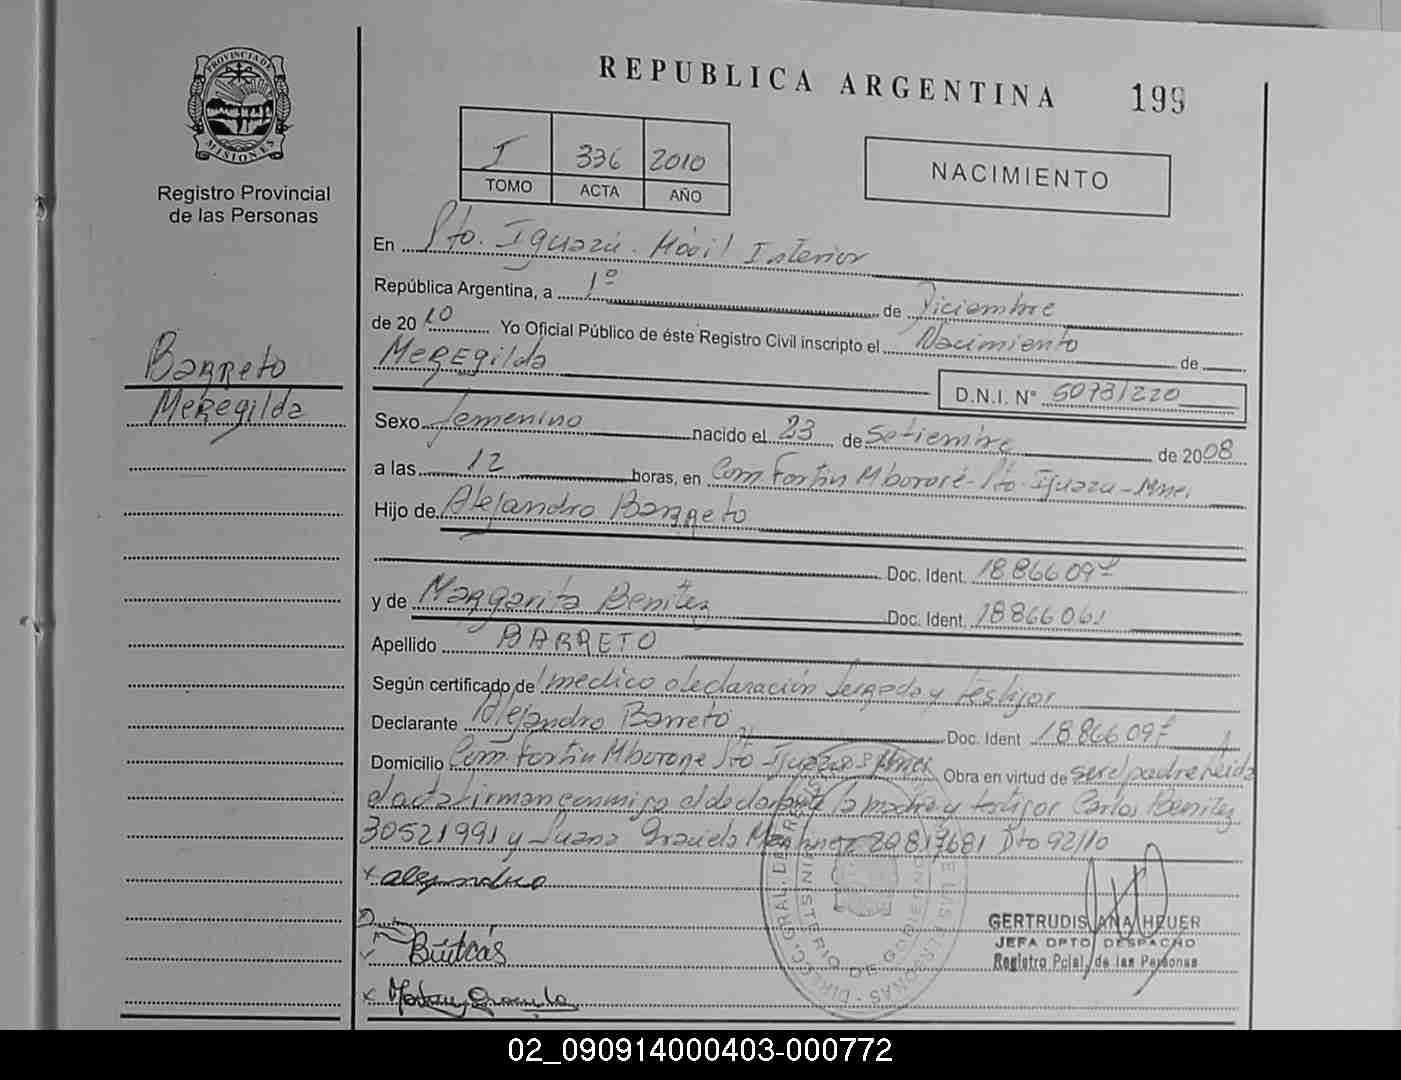 PROVINCIA DE
MISIONES
Registro Provincial
de las Personas
REPUBLICA ARGENTINA 199
I 336 2010
TOMO ACTA AÑO
NACIMIENTO
En Pto. Iguazú. Móvil Interior
República Argentina, a 1º de Diciembre
de 2010 Yo Oficial Público de éste Registro Civil inscripto el Nacimiento de
Meregilda
D.N.I. Nº 50731220
Barreto
Meregilda
Sexo femenino nacido el 23 de Setiembre de 2008
a las 12 horas, en Com. Fortin Mbororé - Pto. Iguazu - Mnes
Hijo de Alejandro Barreto
Doc. Ident. 18866097
y de Margarita Benitez Doc. Ident. 18866061
Apellido BARRETO
Según certificado de medico declaración Juzgado y testigos
Declarante Alejandro Barreto Doc. Ident 18866097
Domicilio Com. Fortin Mborore Pto Iguazu Mnes Obra en virtud de ser el padre Leida
el acta firman conmigo el declarante la madre y testigos Carlos Benitez
30521991 y Juana Graciela Martinez 29817681 Dto 92/10
GERTRUDIS ANA HEUER
JEFA DPTO DESPACHO
Registro Pcial. de las Personas
02_090914000403-000772